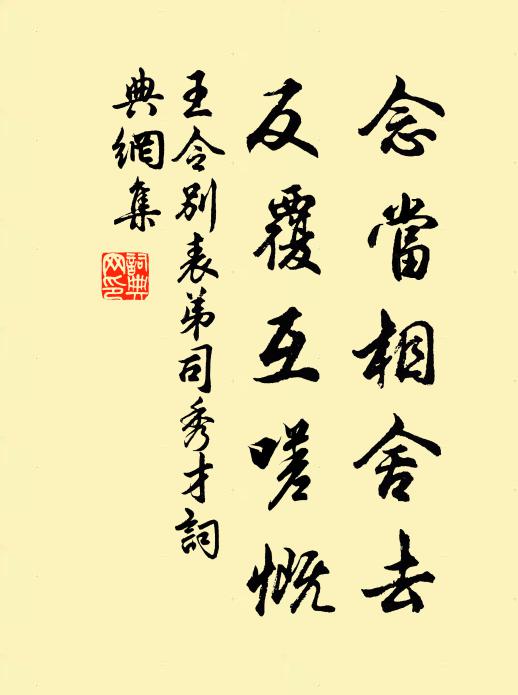 念當相舍去
反覆互嗟慨
王令別表弟司秀才詞
典網集
詞典
网印